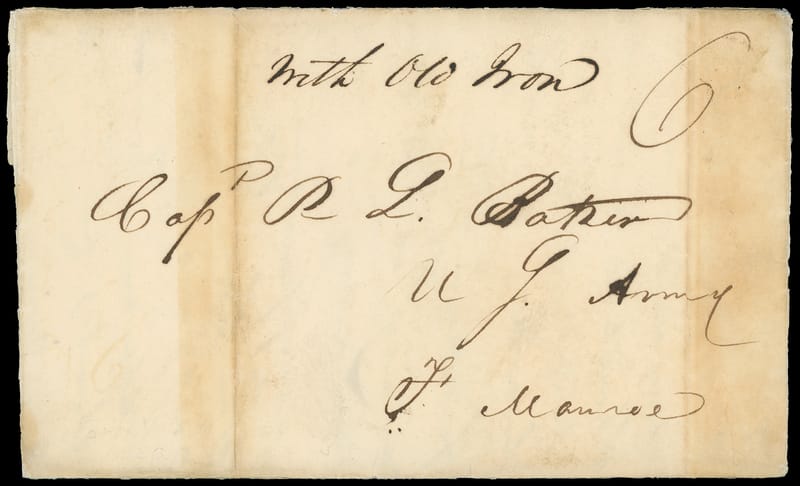 With Old Iron 6
Capt R L. Baker
U S. Army
Ft. Monroe